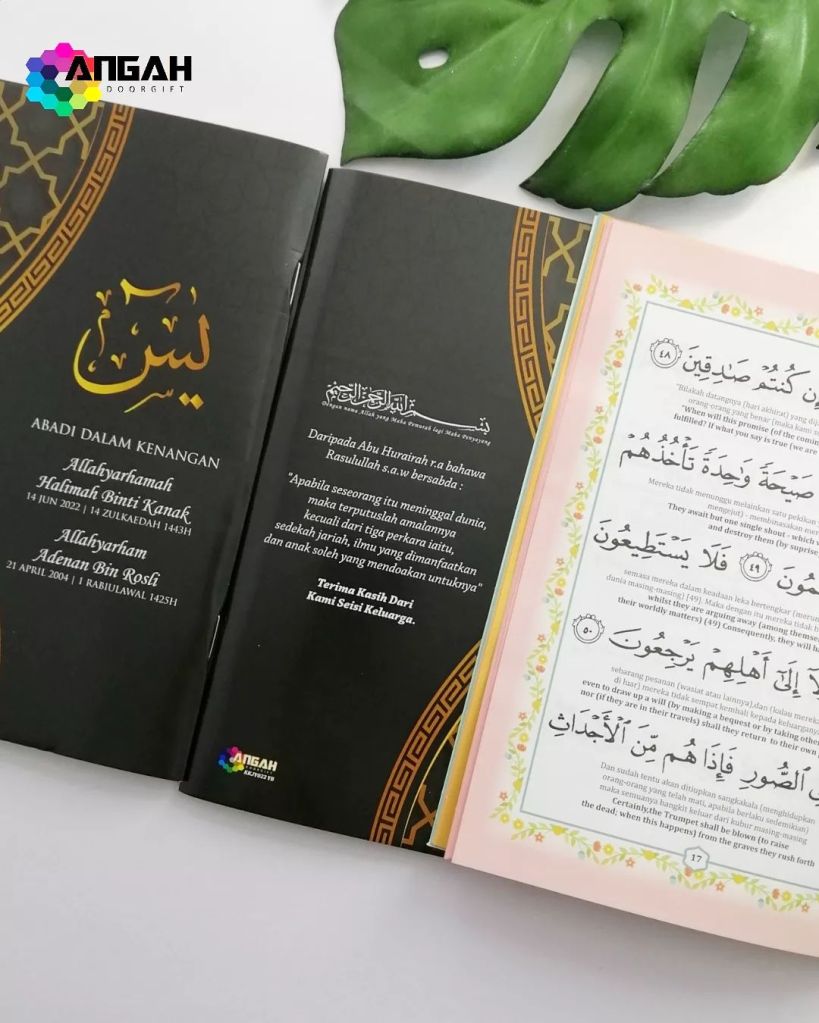 ANGAH
DOORGIFT
يس
ABADI DALAM KENANGAN
Allahyarhamah
Halimah Binti Kanak
14 JUN 2022 | 14 ZULKAEDAH 1443H
Allahyarham
Adenan Bin Rosli
21 APRIL 2004 | 1 RABIULAWAL 1425H
بِسْمِ اللَّهِ الرَّحْمَنِ الرَّحِيمِ
Dengan nama Allah yang Maha Pemurah lagi Maha Penyayang
Daripada Abu Hurairah r.a bahawa
Rasulullah s.a.w bersabda :
"Apabila seseorang itu meninggal dunia,
maka terputuslah amalannya
kecuali dari tiga perkara iaitu,
sedekah jariah, ilmu yang dimanfaatkan
dan anak soleh yang mendoakan untuknya"
Terima Kasih Dari
Kami Seisi Keluarga.
ANGAH
DOORGIFT
إِن كُنتُمْ صَادِقِينَ ٤٨
"Bilakah datangnya (hari akhirat) yang
orang-orang yang benar (maka kami
"When will this promise (of the
fulfilled? If what you say is true (we are
صَيْحَةً وَاحِدَةً تَأْخُذُهُمْ
Mereka tidak menunggu melainkan satu pekikan
mengejut) - membinasakan
They await but one single shout - which
and destroy them (by suprise)
٤٩ فَلَا يَسْتَطِيعُونَ
semasa mereka dalam keadaan leka bertengkar
dunia masing-masing) [49]. Maka dengan itu mereka tidak
whilst they are arguing away (among
their worldly matters) (49) Consequently, they will
إِلَىٰ أَهْلِهِمْ يَرْجِعُونَ ٥٠
sebarang pesanan (wasiat atau lainnya),dan (kalau
di luar) mereka tidak sempat kembali kepada
even to draw up a will (by making a bequest or by taking
nor (if they are in their travels) shall they return to their own
الصُّورِ فَإِذَا هُم مِّنَ الْأَجْدَاثِ
Dan sudah tentu akan ditiupkan sangkakala (menghidupkan
orang-orang yang telah mati, apabila berlaku sedemikian)
maka semuanya bangkit keluar dari kubur masing-masing
Certainly,the Trumpet shall be blown (to raise
the dead; when this happens) from the graves they rush forth
17